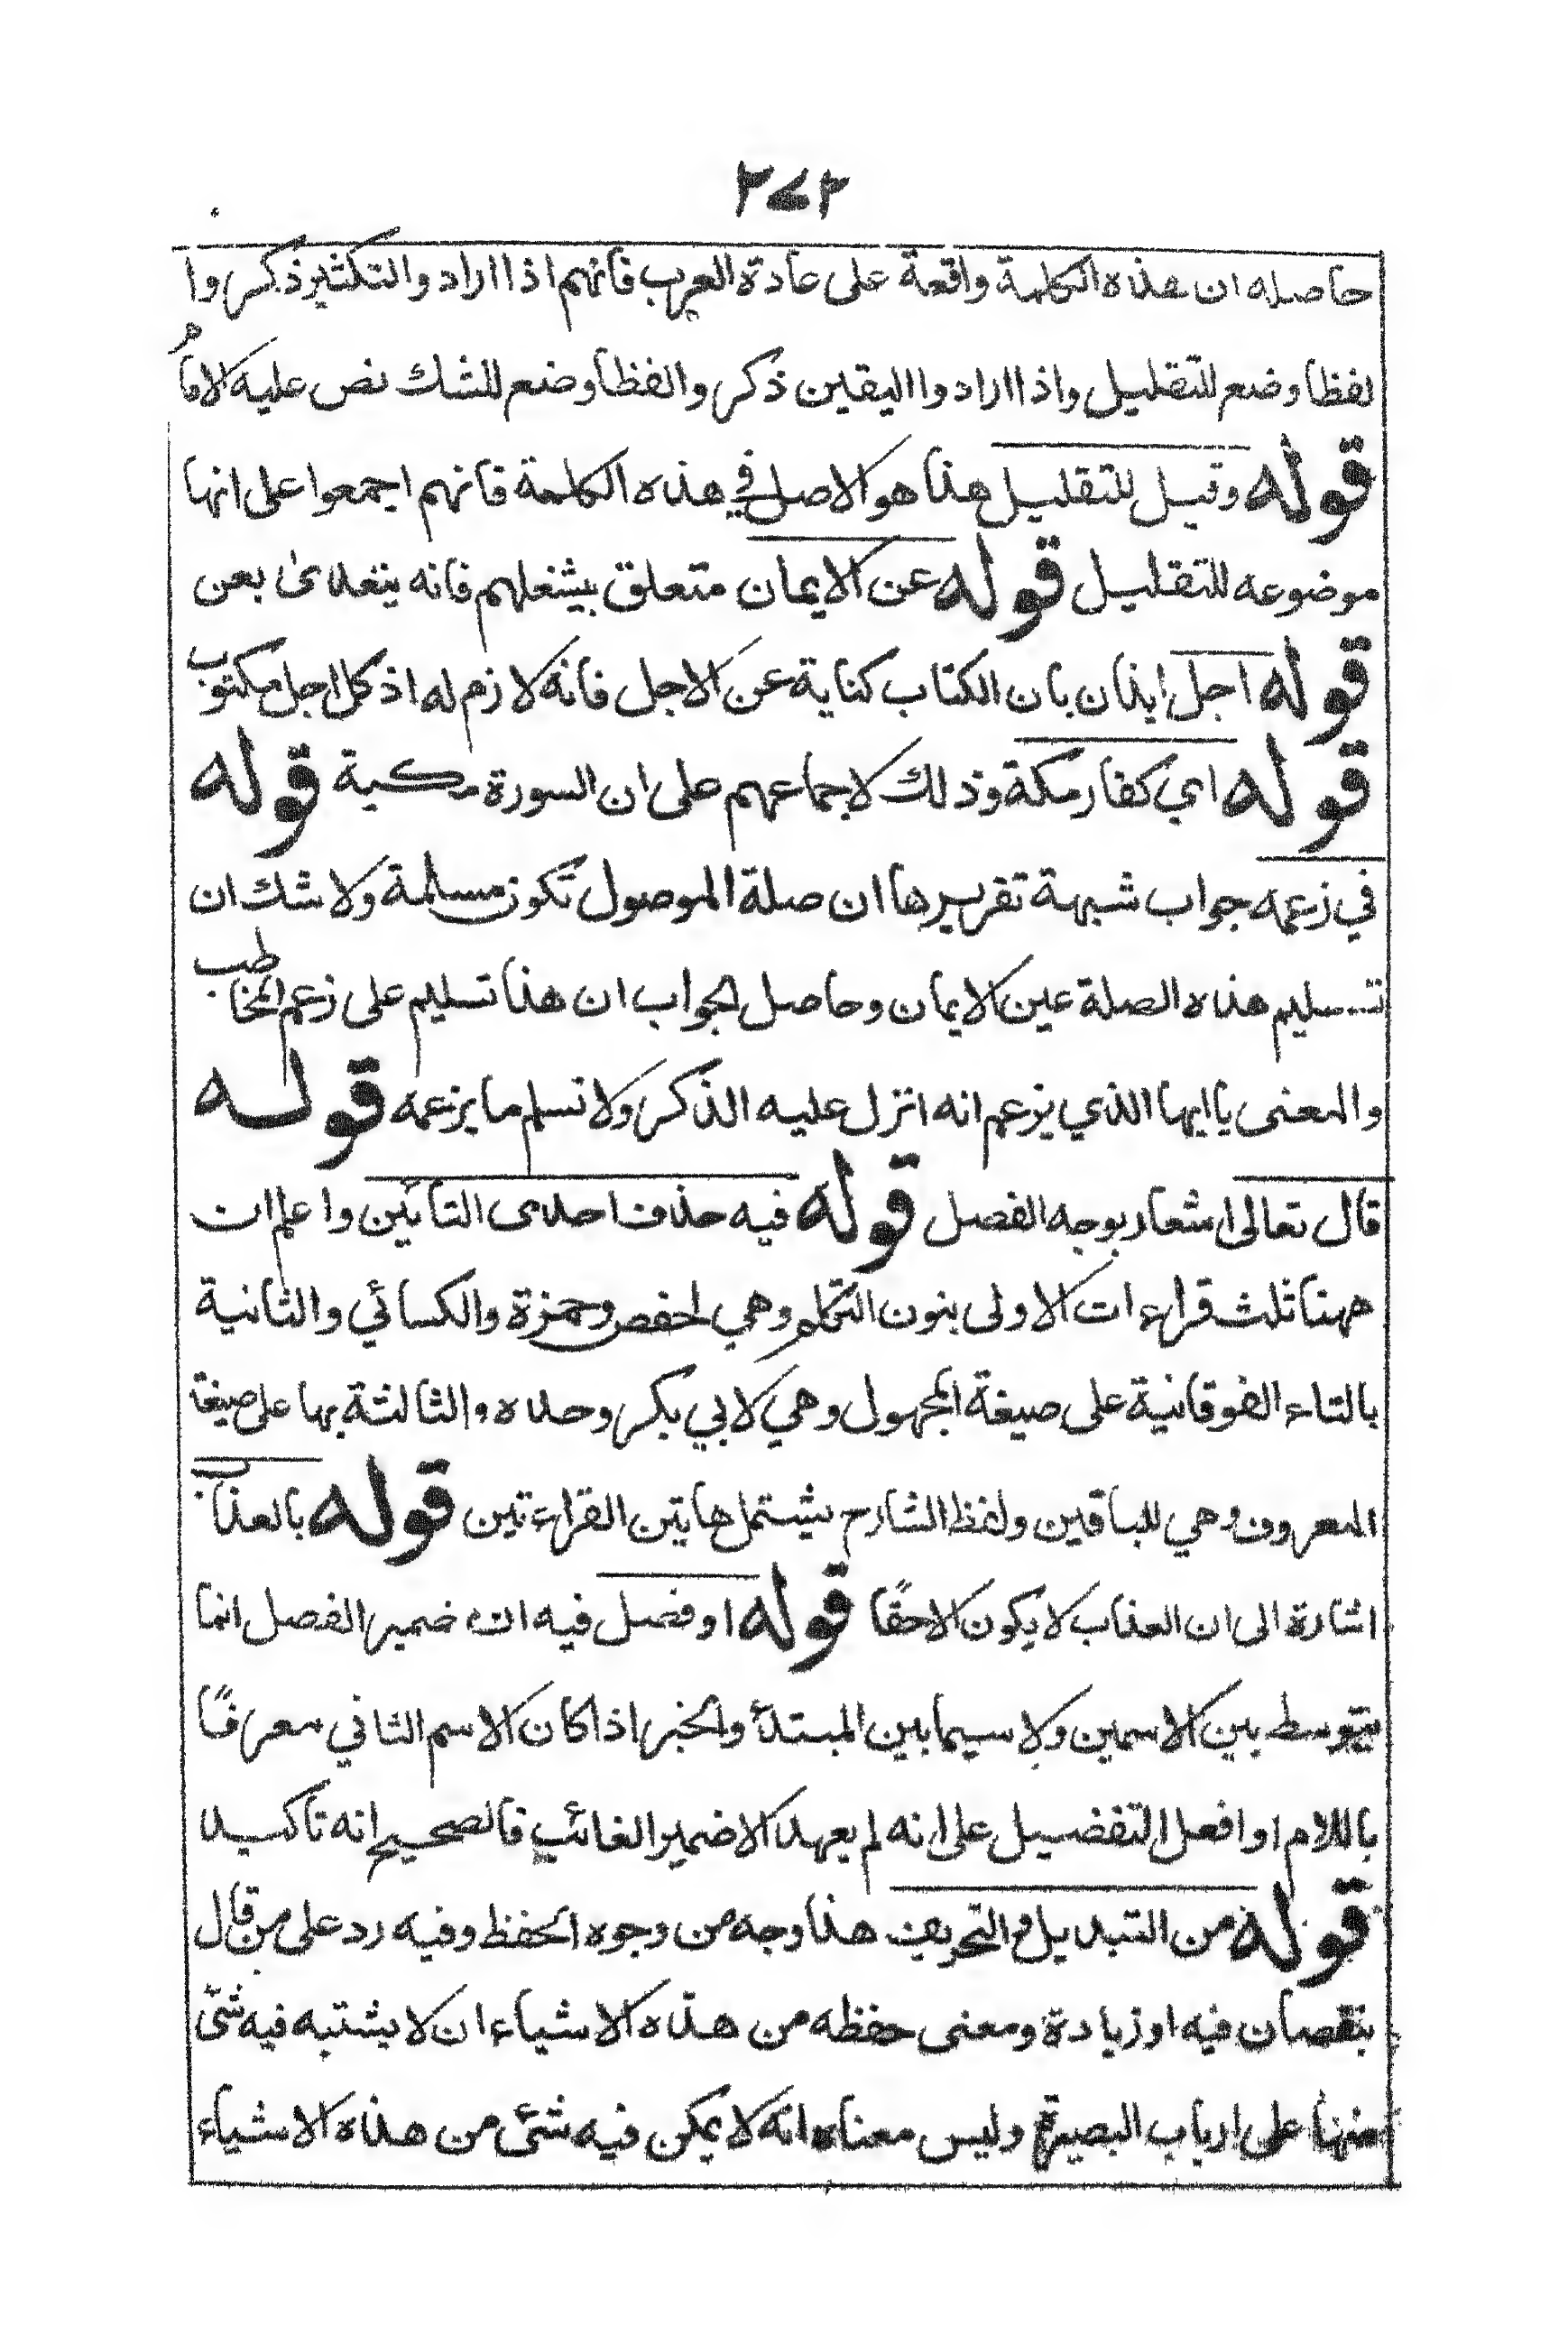 ٢٧٢
حاصله ان هذه الكلمة واقعة على عادة العرب فانهم اذا ارادوا التكثير ذكروا
لفظا وضع للتقليل واذا ارادوا اليقين ذكروا لفظا وضع للشك نص عليه الامام
قوله وقيل للتقليل هذا هو الاصل في هذه الكلمة فانهم اجمعوا على انها
موضوعه للتقليل قوله عن الايمان متعلق بيشغلهم فانه يتعدى بعن
قوله اجل ايذان بان الكتاب كناية عن الاجل فانه لازم له اذ كل اجل مكتوب
قوله اي كفار مكة وذلك لاجماعهم على ان السورة مكية قوله
في زعمه جواب شبهة تقريرها ان صلة الموصول تكون مسلمة ولا شك ان
تسليم هذه الصلة عين الايمان وحاصل الجواب ان هذا تسليم على زعم المخاطب
والمعنى يا ايها الذي يزعم انه انزل عليه الذكر ولا نسلم ما يزعمه قوله
قال تعالى اشعار بوجه الفصل قوله فيه حذف احدى التائين واعلم ان
ههنا ثلث قراءات الاولى بنون التكلم وهي لحفص وحمزة والكسائي والثانية
بالتاء الفوقانية على صيغة المجهول وهي لابي بكر وحده والثالثة بها على صيغة
المعروف وهي للباقين ولفظ الشارح يشتمل هاتين القراءتين قوله بالعذاب
اشارة الى ان العذاب لا يكون الا حقًا قوله او فصل فيه ان ضمير الفصل انما
يتوسط بين الاسمين ولا سيما بين المبتدأ والخبر اذا كان الاسم الثاني معرفًا
باللام او افعل التفضيل على انه لم يعهد الا ضمير الغائب فالصحيح انه تاكيد
قوله من التبديل والتحريف هذا وجه من وجوه الحفظ وفيه رد على من قال
بنقصان فيه او زيادة ومعنى حفظه من هذه الاشياء ان لا يشتبه فيه شئ
منها على ارباب البصيرة وليس معناه انه لا يمكن فيه شئ من هذه الاشياء